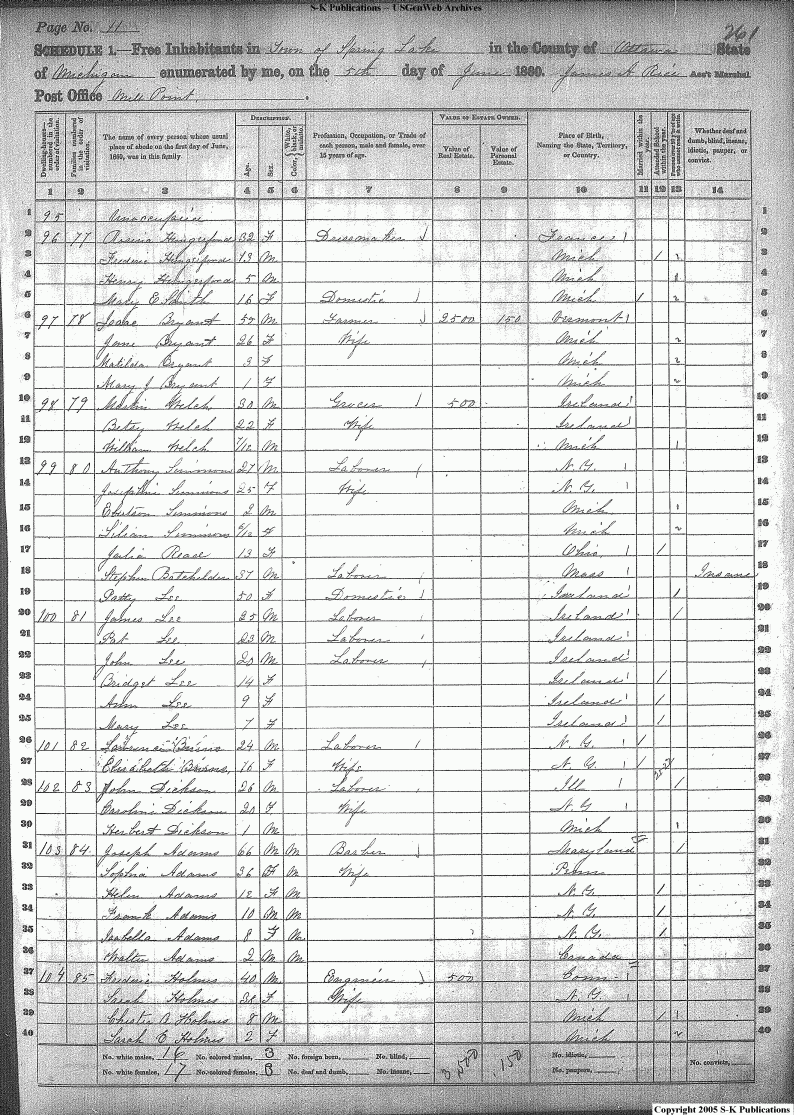 S-K Publications – USGenWeb Archives
Page No. 11 261
SCHEDULE 1.—Free Inhabitants in Town of Spring Lake in the County of Ottawa State
of Michigan enumerated by me, on the 5th day of June 1860. James A Rice Ass't Marshal
Post Office Mill Point.
Dwelling-houses—numbered in the order of visitation. Families numbered in the order of visitation. The name of every person whose usual place of abode on the first day of June, 1860, was in this family. DESCRIPTION. Age. Sex. Color, White, black, or mulatto. Profession, Occupation, or Trade of each person, male and female, over 15 years of age. VALUE OF ESTATE OWNED. Value of Real Estate. Value of Personal Estate. Place of Birth, Naming the State, Territory, or Country. Married within the year. Attended School within the year. Whether deaf and dumb, blind, insane, idiotic, pauper, or convict.
1 2 3 4 5 6 7 8 9 10 11 12 13 14
1 95 Unoccupied 1
2 96 77 Hungerford 32 F Dressmaker France 1 2
3 Frederic Hungerford 13 M Mich / 3
4 Henry Hungerford 5 M Mich 4
5 Mary E Smith 16 F Domestic Mich 5
6 97 78 Isaac Bryant 57 M Farmer 2500 150 Vermont 1 6
7 Jane Bryant 26 F Wife Mich 7
8 Matilda Bryant 3 F Mich 8
9 Mary J Bryant 1 F Mich 9
10 98 79 Martin Welch 30 M Grocer 500 Ireland 1 10
11 Betsy Welch 22 F Wife Ireland 1 11
12 William Welch 7/12 M Mich 12
13 99 80 Anthony Simmons 27 M Laborer N. Y. 1 13
14 Josephine Simmons 25 F Wife N. Y. 1 14
15 Simmons 2 M Mich 15
16 Lilian Simmons /12 F Mich 16
17 Julia Read 13 F Ohio 1 / 17
18 Stephen Batchelder 37 M Laborer Mass 1 Insane 18
19 Patty Lee 50 F Domestic Ireland 1 / 19
20 100 81 James Lee 25 M Laborer Ireland 1 / 20
21 Pat Lee 23 M Laborer Ireland 1 21
22 John Lee 20 M Laborer Ireland 1 22
23 Bridget Lee 14 F Ireland 1 / 23
24 Ann Lee 9 F Ireland 1 / 24
25 Mary Lee 7 F Ireland 1 / 25
26 101 82 Burns 24 M Laborer N. Y. 1 / 26
27 Elisabeth Burns 16 F Wife N. Y. 1 / 27
28 102 83 John Dickson 26 M Laborer Ill 1 / 28
29 Caroline Dickson 20 F Wife N. Y. 1 29
30 Herbert Dickson 1 M Mich 30
31 103 84 Joseph Adams 66 M M Barber Maryland / 31
32 Sophia Adams 36 F M Wife Penn 32
33 Helen Adams 12 F M N. Y. / 33
34 Frank Adams 10 M M N. Y. / 34
35 Isabella Adams 8 F M N. Y. / 35
36 Walter Adams 2 M M Canada 36
37 104 85 Frederic Holmes 40 M Engineer 500 Conn 1 37
38 Sarah Holmes 38 F Wife N. Y. 1 38
39 Chester A Holmes 8 M Mich / 39
40 Sarah E Holmes 2 F Mich 40
No. white males, 16 No. colored males, 3 No. foreign born, No. blind, 3,500 150 No. idiotic, No. convicts,
No. white females, 17 No. colored females, 3 No. deaf and dumb, No. insane, No. paupers,
Copyright 2005 S-K Publications